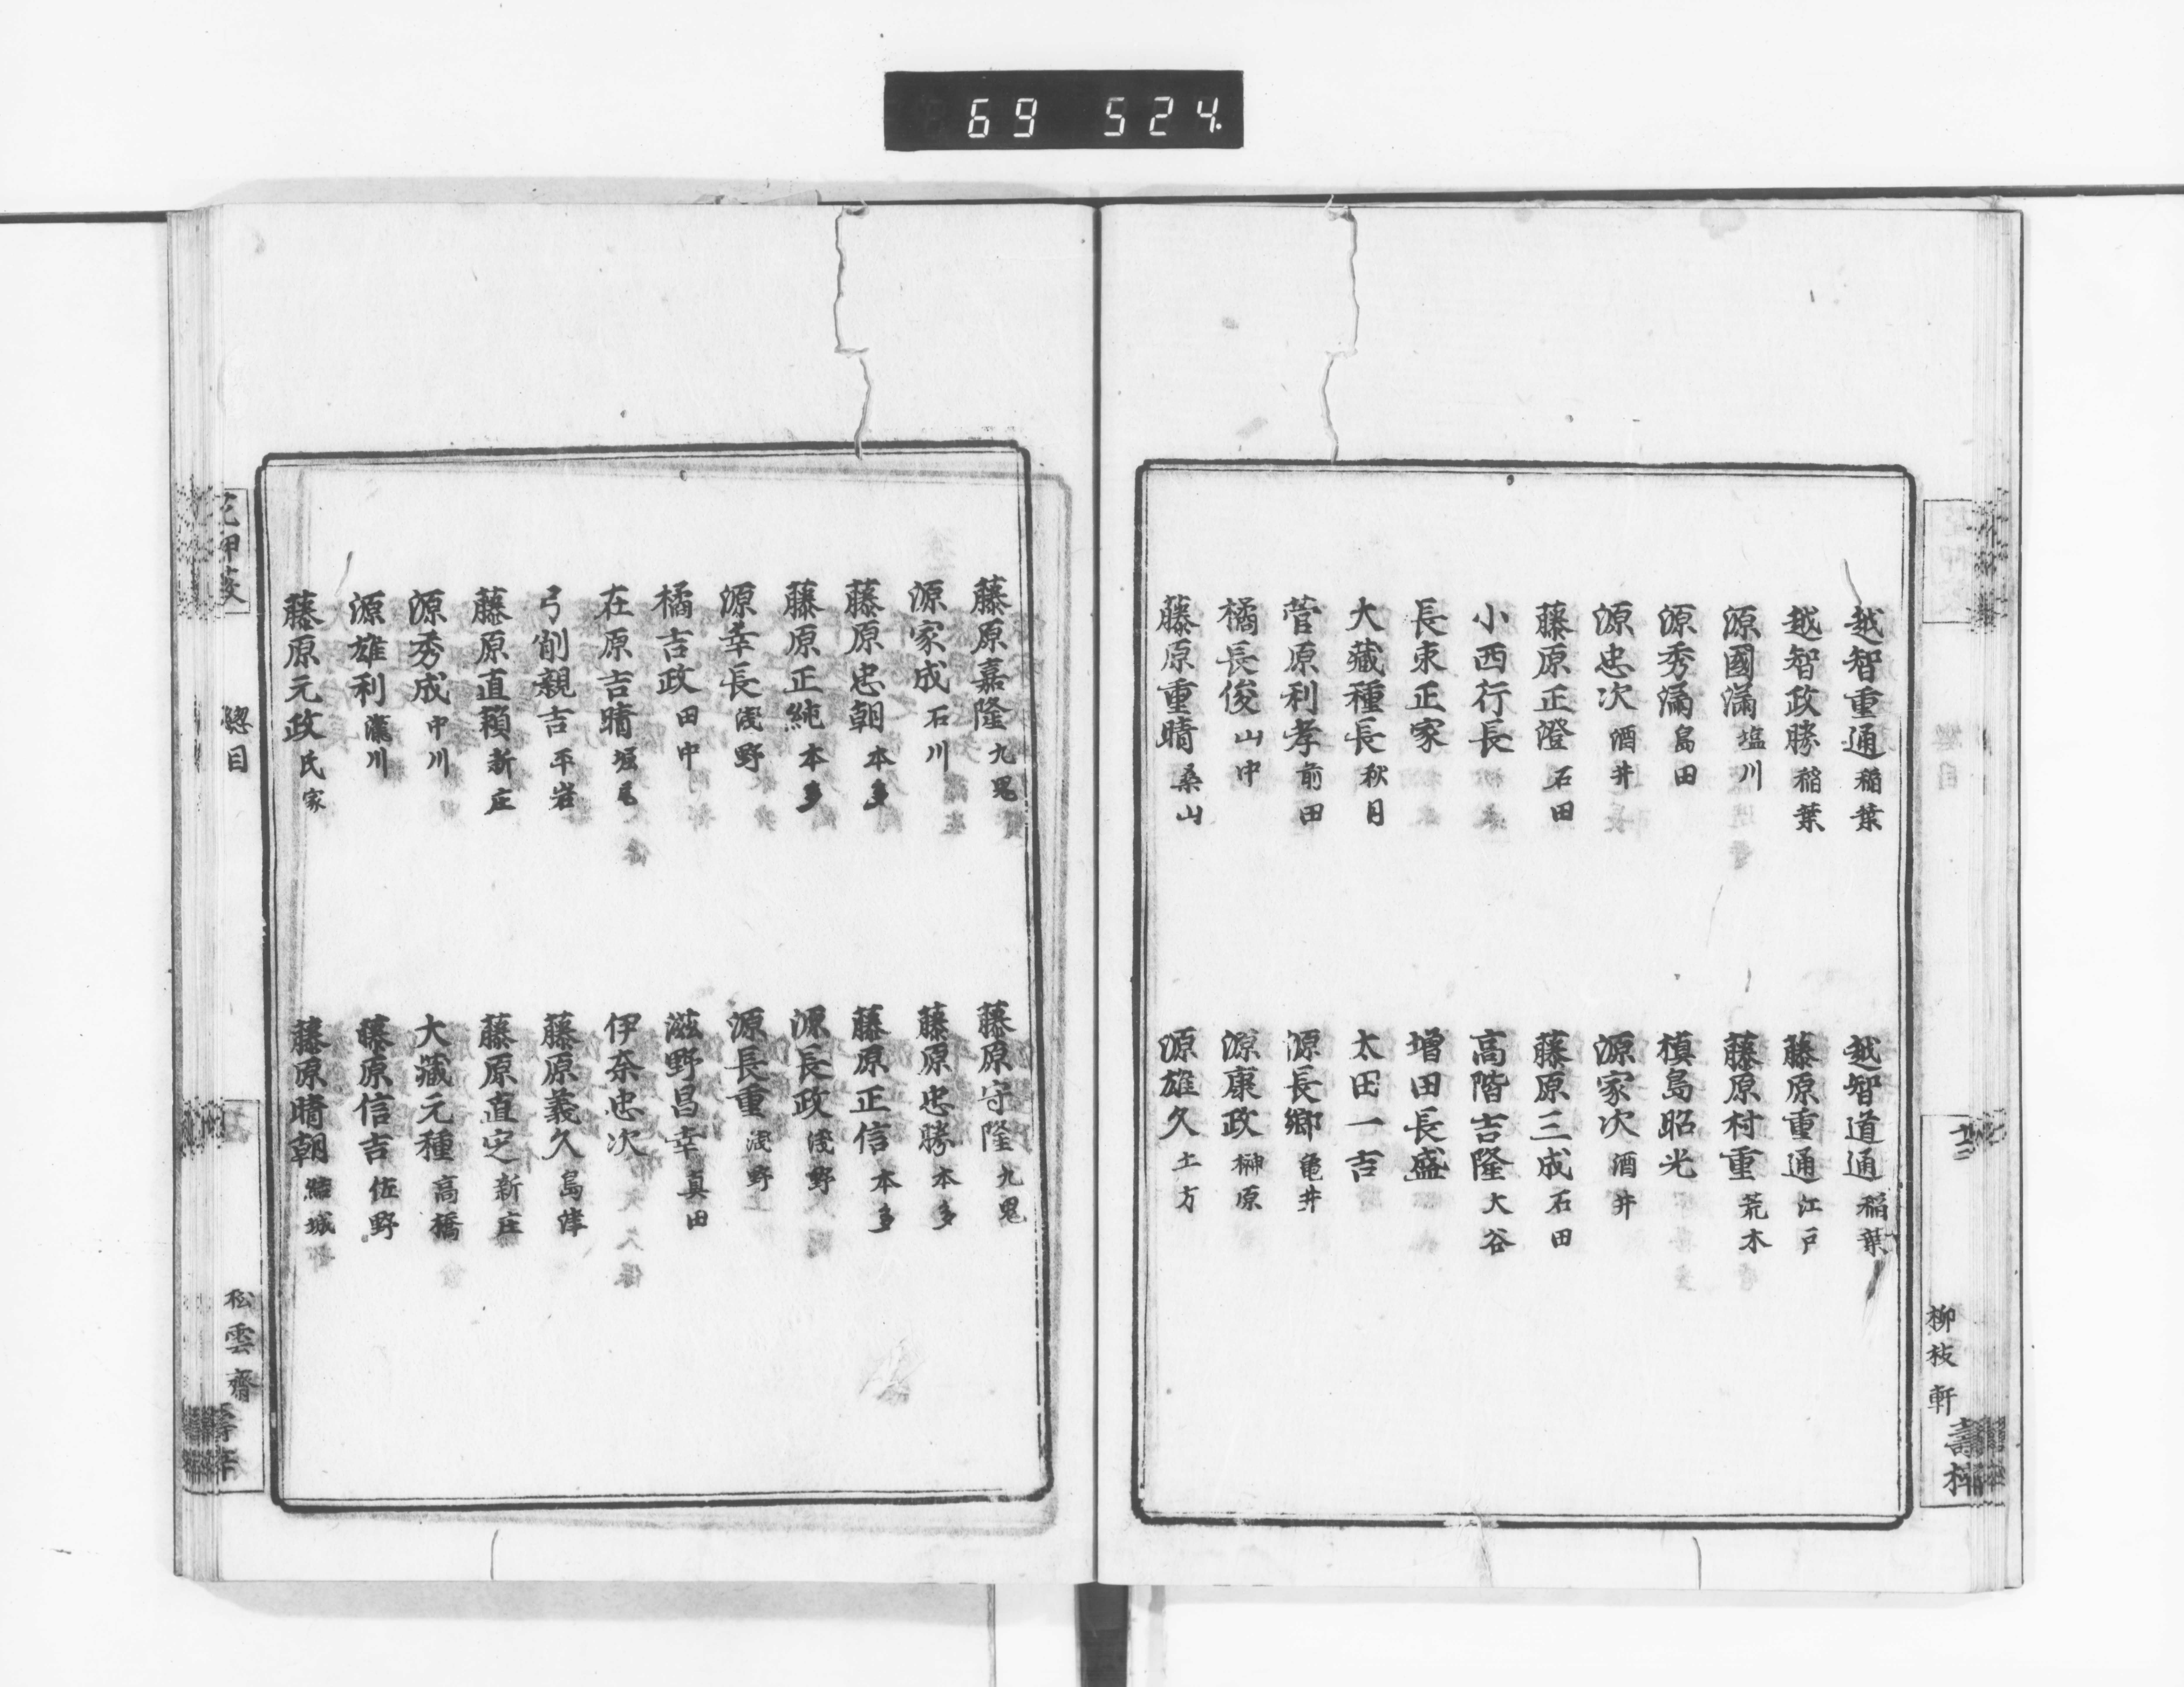 69 524.
越智重通 稲葉
越智道通 稲葉
越智政勝 稲葉
藤原重通 江戸
源國滿 塩川
藤原村重 荒木
源秀滿 島田
槙島昭光
源忠次 酒井
源家次 酒井
藤原正澄 石田
藤原三成 石田
小西行長
高階吉隆 大谷
長束正家
增田長盛
大藏種長 秋月
太田一吉
菅原利孝 前田
源長郷 亀井
橘長俊 山中
源康政 榊原
藤原重晴 桑山
源雄久 土方
柳枝軒
藤原嘉隆 九鬼
藤原守隆 九鬼
源家成 石川
藤原忠勝 本多
藤原忠朝 本多
藤原正信 本多
藤原正純 本多
源長政 淺野
源幸長 淺野
源長重 淺野
橘吉政 田中
滋野昌幸 真田
在原吉晴 堀尾
伊奈忠次
弓削親吉 平岩
藤原義久 島津
藤原直頼 新庄
藤原直定 新庄
源秀成 中川
大藏元種 高橋
源雄利 瀧川
藤原信吉 佐野
藤原元政 氏家
藤原晴朝 結城
總目
松雲齋